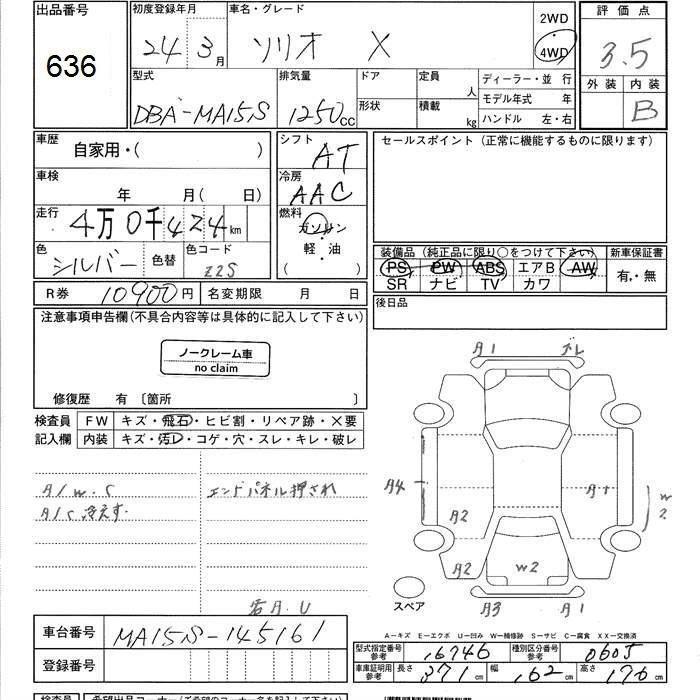 出品番号
636
初度登録年月
24 3月
車名・グレード
ソリオ X
2WD
4WD
評価点
3.5
外装 内装
B
型式
DBA-MA15S
排気量
1250cc
ドア
形状
定員 人
積載 kg
ディーラー・並行
モデル年式 年
ハンドル 左・右
車歴
自家用・( )
シフト
AT
セールスポイント (正常に機能するものに限ります)
車検
年 月( 日)
冷房
AAC
走行
4万0千424km
燃料
ガソリン
・
軽・油
( )
色
シルバー
色替
色コード
Z2S
装備品 (純正品に限り○をつけて下さい)
PS PW ABS エアB AW
SR ナビ TV カワ
新車保証書
有・無
R券 10900円
名変期限 月 日
後日品
注意事項申告欄(不具合内容等は具体的に記入して下さい)
ノークレーム車
no claim
修復歴 有 〔箇所 〕
検査員
記入欄
FW キズ・飛石・ヒビ割・リペア跡・X要
内装 キズ・汚レ・コゲ・穴・スレ・キレ・破レ
A/W.C
A/C 冷えず
エンドパネル押され
A1 ズレ
A4
A2
A1
W2
A2
W2
A2
A3 A1
スペア
A-キズ E-エクボ U-凹み W-補修跡 S-サビ C-腐食 XX-交換済
車台番号
MA15S-145161
登録番号
型式指定番号
参考
16746
種別区分番号
参考
0605
車庫証明用
参考
長さ 371cm
幅 162cm
高さ 176cm